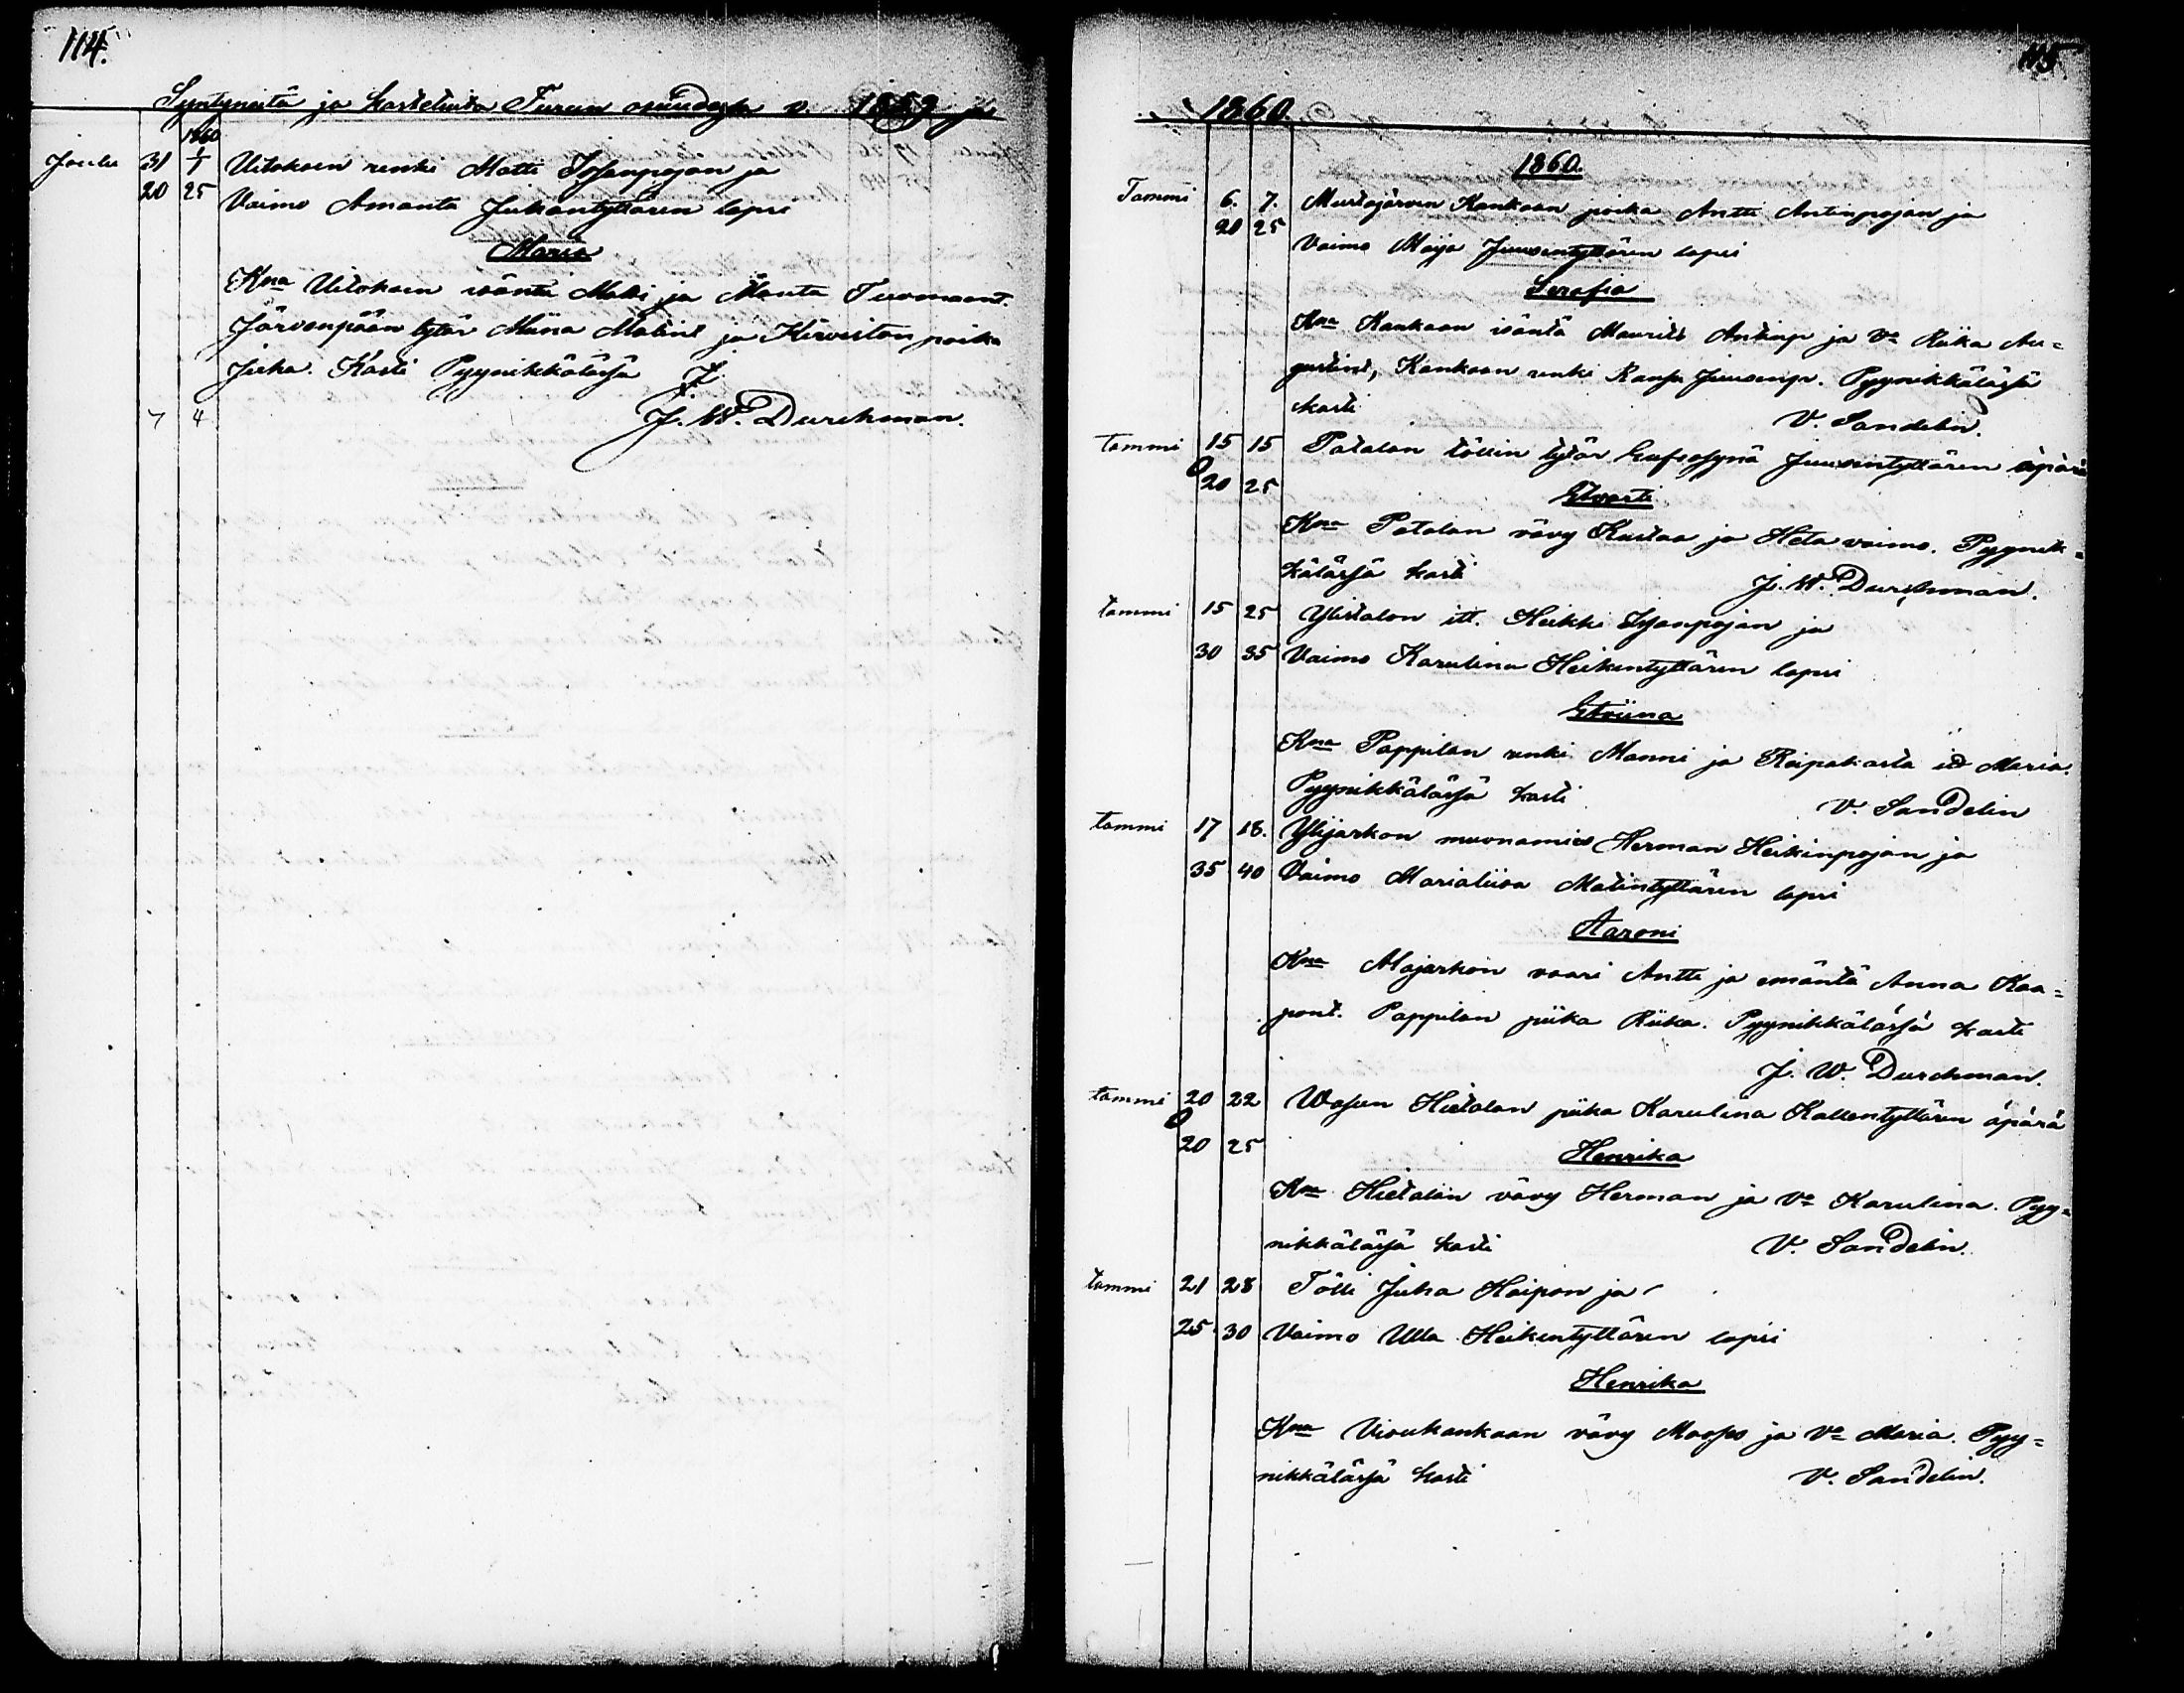 114.
Syntyneitä ja kastetuita Turun osuudessa v. 1859 ja
1860
Joulu 31 1/1 Uitoksen renki Matti Josenpojan ja
20 25 Vaimo Amanta Juhantyttären lapsi
Maria
Kna Uitoksen isäntä Matti ja Manta Tuomaant.
Järvenpään tytär Miina Matint ja Kirveiston poika
Juha. Kasti Pyynikkälässä
7 4 J. W. Durchman.
115
1860.
1860.
Tammi 6. 7. Mustajärven Kankaan poika Antti Antinpojan ja
20 25 Vaimo Maija Juusentyttären lapsi
Serafia
Kna Kankaan isäntä Maurits Antinp ja Va Riika Au=
gustint, Kankaan renki Juusenp. Pyynikkälässä
kasti V. Sandelin.
tammi 15 15 Patalan töllin tytär Eufrosyna Juusentyttären äpärä
20 25 Etvarti
Kna Patalan vävy Kustaa ja Heta vaimo. Pyynik=
kälässä kasti J. W. Durchman.
tammi 15 25 Ylistalon itt. Heikki Josanpojan ja
30 35 Vaimo Karulina Heikentyttären lapsi
Etviina
Kna Pappilan renki Manni ja Reipakasta Maria.
Pyynikkälässä kasti V. Sandelin
tammi 17 18. Ylijarkon muonamies Herman Heikinpojan ja
35 40 Vaimo Marialiisa Matintyttären lapsi
Aaroni
Kna Alajarkon vaari Antti ja emäntä Anna Kaa=
pont. Pappilan piika Riika. Pyynikkälässä kasti
J. W. Durchman.
tammi 20 22 Wasun Hietalan piika Karulina Kallentyttären äpärä
20 25 Henrika
Kna Hietalan vävy Herman ja Va Karulina. Pyy=
nikkälässä kasti V. Sandelin.
tammi 21 28 Tölli Juha Haipon ja
25 30 Vaimo Ulla Heikentyttären lapsi
Henrika
Kna Visukankaan vävy Moses ja Va Maria. Pyy=
nikkälässä kasti V. Sandelin.